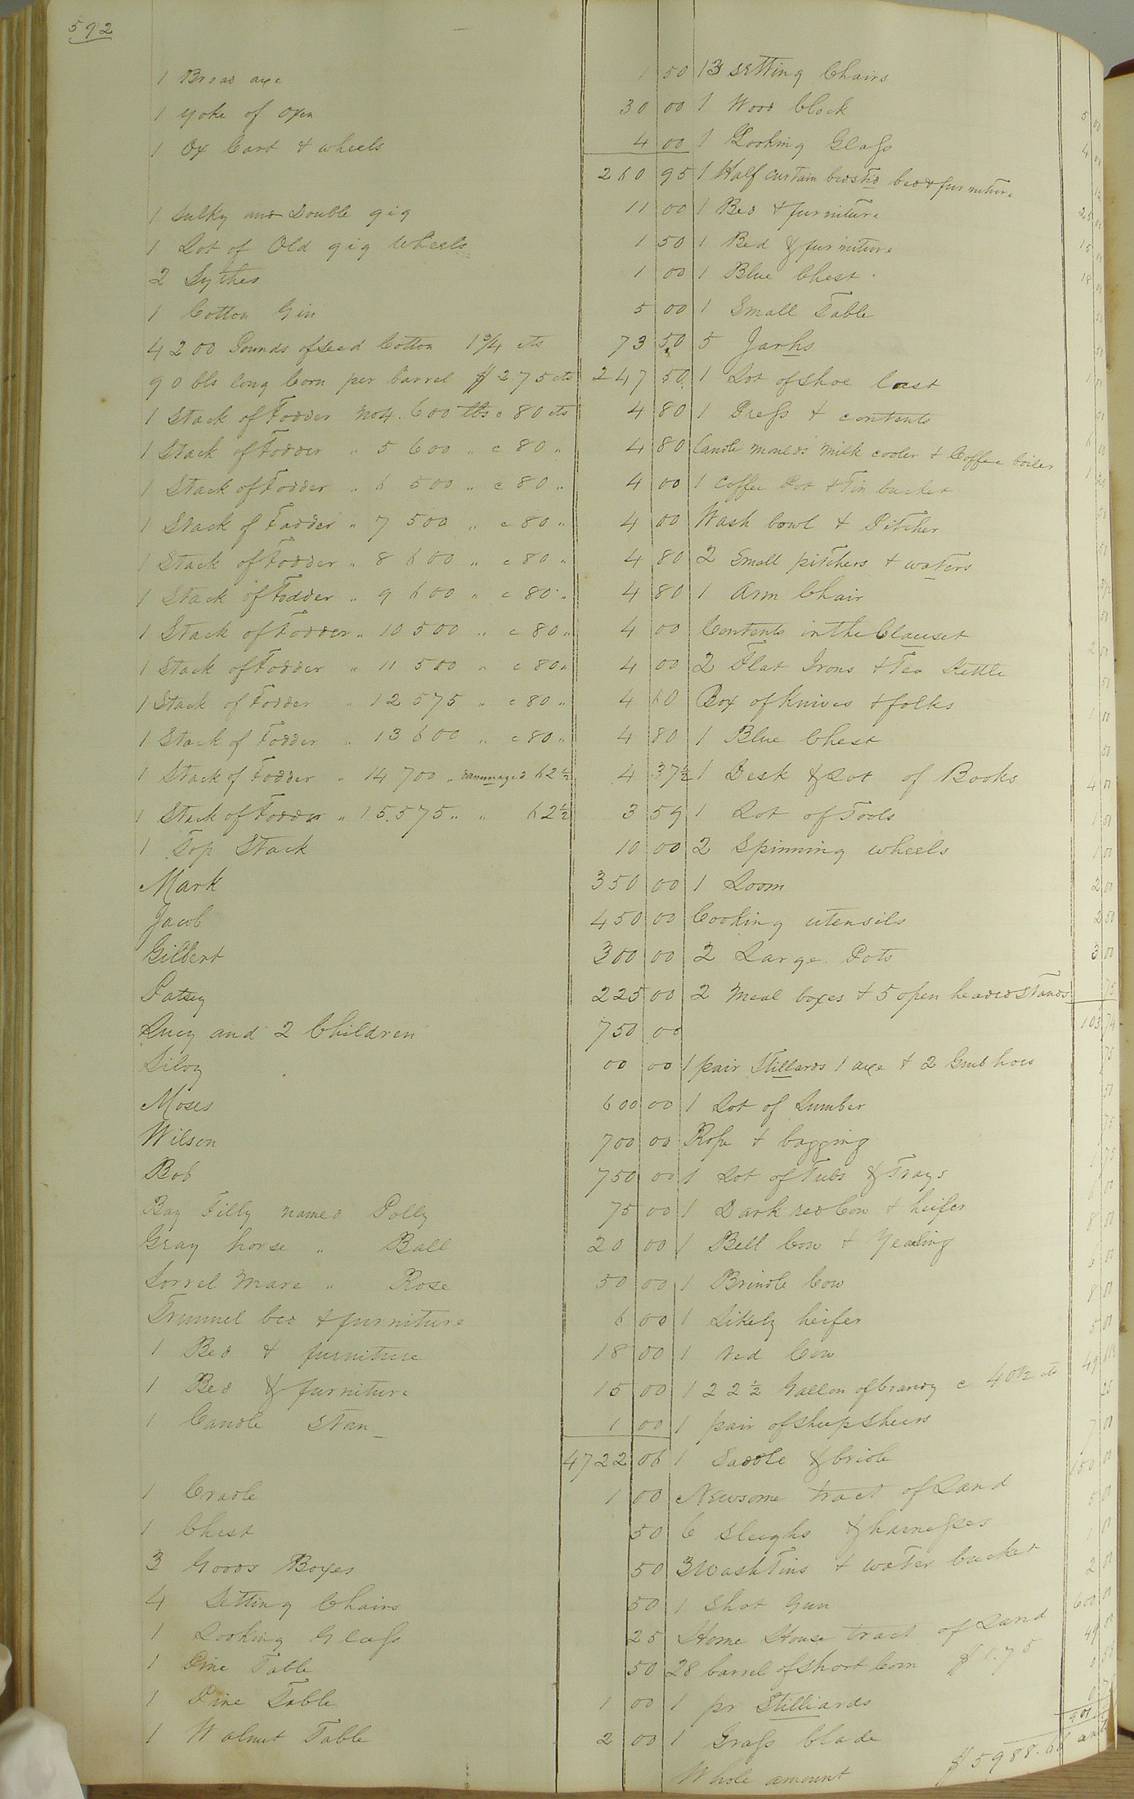 592
1 Broad axe 1 50
1 yoke of oxen 30 00
1 Ox Cart & wheels 4 00
260 95
1 Sulky and Double gig 11 00
1 Lot of Old gig wheels 1 50
2 Sythes 1 00
1 Cotton Gin 5 00
4200 Pounds of seed Cotton 1¾ cts 73 50
90 bls long Corn per barrel $275 cts 247 50
1 Stack of Fodder No 4. 600 lbs c 80 cts 4 80
1 Stack of Fodder " 5 600 " c 80 " 4 80
1 Stack of Fodder " 6 500 " c 80 " 4 00
1 Stack of Fodder " 7 500 " c 80 " 4 00
1 Stack of Fodder " 8 600 " c 80 " 4 80
1 Stack of Fodder " 9 600 " c 80 " 4 80
1 Stack of Fodder " 10 500 " c 80 " 4 00
1 Stack of Fodder " 11 500 " c 80 " 4 00
1 Stack of Fodder " 12 575 " c 80 " 4 60
1 Stack of Fodder " 13 600 " c 80 " 4 80
1 Stack of Fodder " 14 700 " dammaged 62½ 4 37½
1 Stack of Fodder " 15.575 " " 62½ 3 59
1 Top Stack 10 00
Mark 350 00
Jacob 450 00
Gilbert 300 00
Patsey 225 00
Lucy and 2 Children 750 00
Silvy 00 00
Moses 600 00
Wilson 700 00
Bob 750 00
Bay Filly named Polly 75 00
Gray horse " Ball 20 00
Sorrel Mare " Rose 50 00
Trunnel bed & furniture 6 00
1 Bed & furniture 18 00
1 Bed & furniture 15 00
1 Candle Stan 1 00
4722 06
1 Cradle 1 00
1 Chest 50
3 Goods Boxes 50
4 Setting Chairs 50
1 Looking Glass 25
1 Pine Table 50
1 Pine Table 1 00
1 Walnut Table 2 00
13 Setting Chairs
1 Wood Clock 5 00
1 Looking Glass 4
1 Half curtain bedstd bed & furniture
1 Bed & furniture 25
1 Bed & furniture 15
1 Blue Chest 18
1 Small Table
5 Jarhs
1 Lot of shoe last
1 Press & contents
Candle moulds milk cooler & Coffee boiler
1 Coffee Pot & Tin bucket
Wash bowl & Pitcher
2 Small pitchers & waters
1 Arm Chair
Contents in the Clauset
2 Flat Irons & Tea Kettle
Box of Knives & folks
1 Blue Chest
1 Desk & Lot of Books 4
1 Lot of Tools
2 Spinning wheels
1 Loom 2 00
Cooking utensils 2 50
2 Large Pots 3 00
2 Meal boxes & 5 open headed stands 75
1 pair Stillards 1 axe & 2 Grub hoes
1 Lot of Lumber
Rope & bagging
1 Lot of Tubs & Trays
1 Dark red Cow & heifer
1 Bell Cow & Yealing 8
1 Brindle Cow
1 Likely heifer 8
1 red Cow 5
1 22½ Gallon of brandy c 40
1 pair of sheep shears
1 Saddle & bridle 7
Newsome tract of Land
6 Sleighs & harnesses 5
3 Wash Tins & water bucket
1 Shot Gun 2
Home House tract of Land 600
28 barrel of short Corn $1.75 49 00
1 pr Stilliards
1 Grass blade
Whole amount $5988.